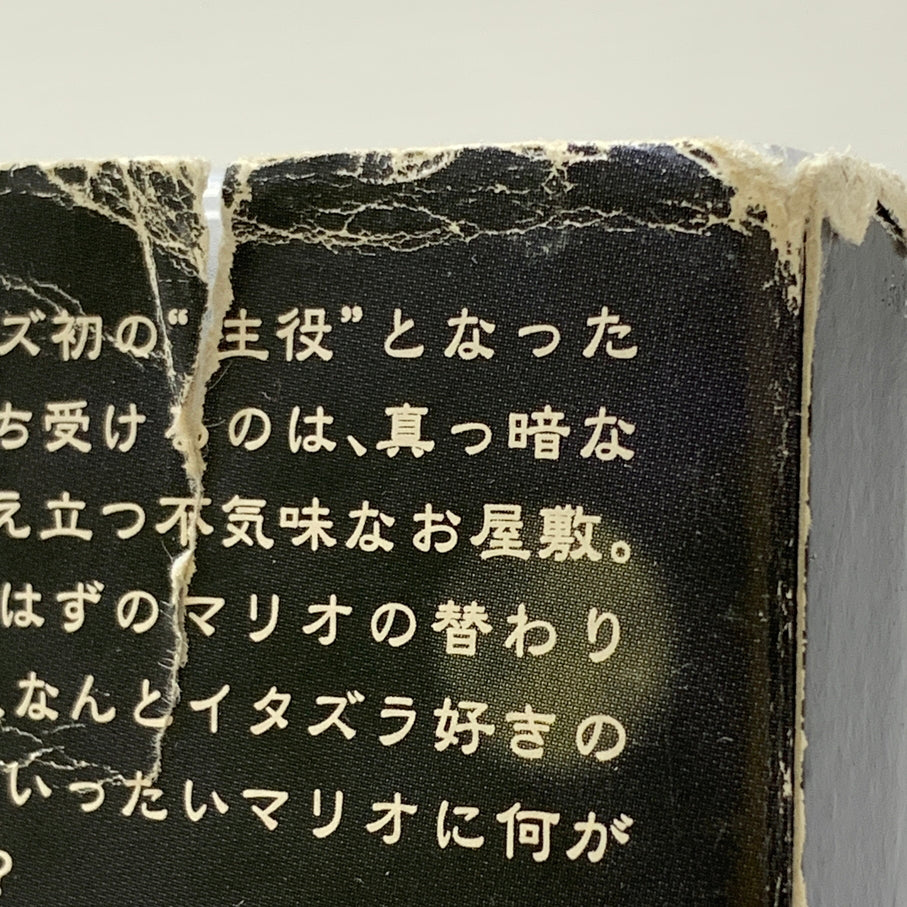 ズ初の“主役”となった
ち受けるのは、真っ暗な
え立つ不気味なお屋敷。
はずのマリオの替わり
なんとイタズラ好きの
いったいマリオに何が
?